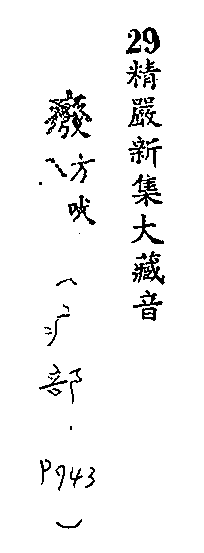 29精嚴新集大藏音
癈方吠
（疒部．P943）